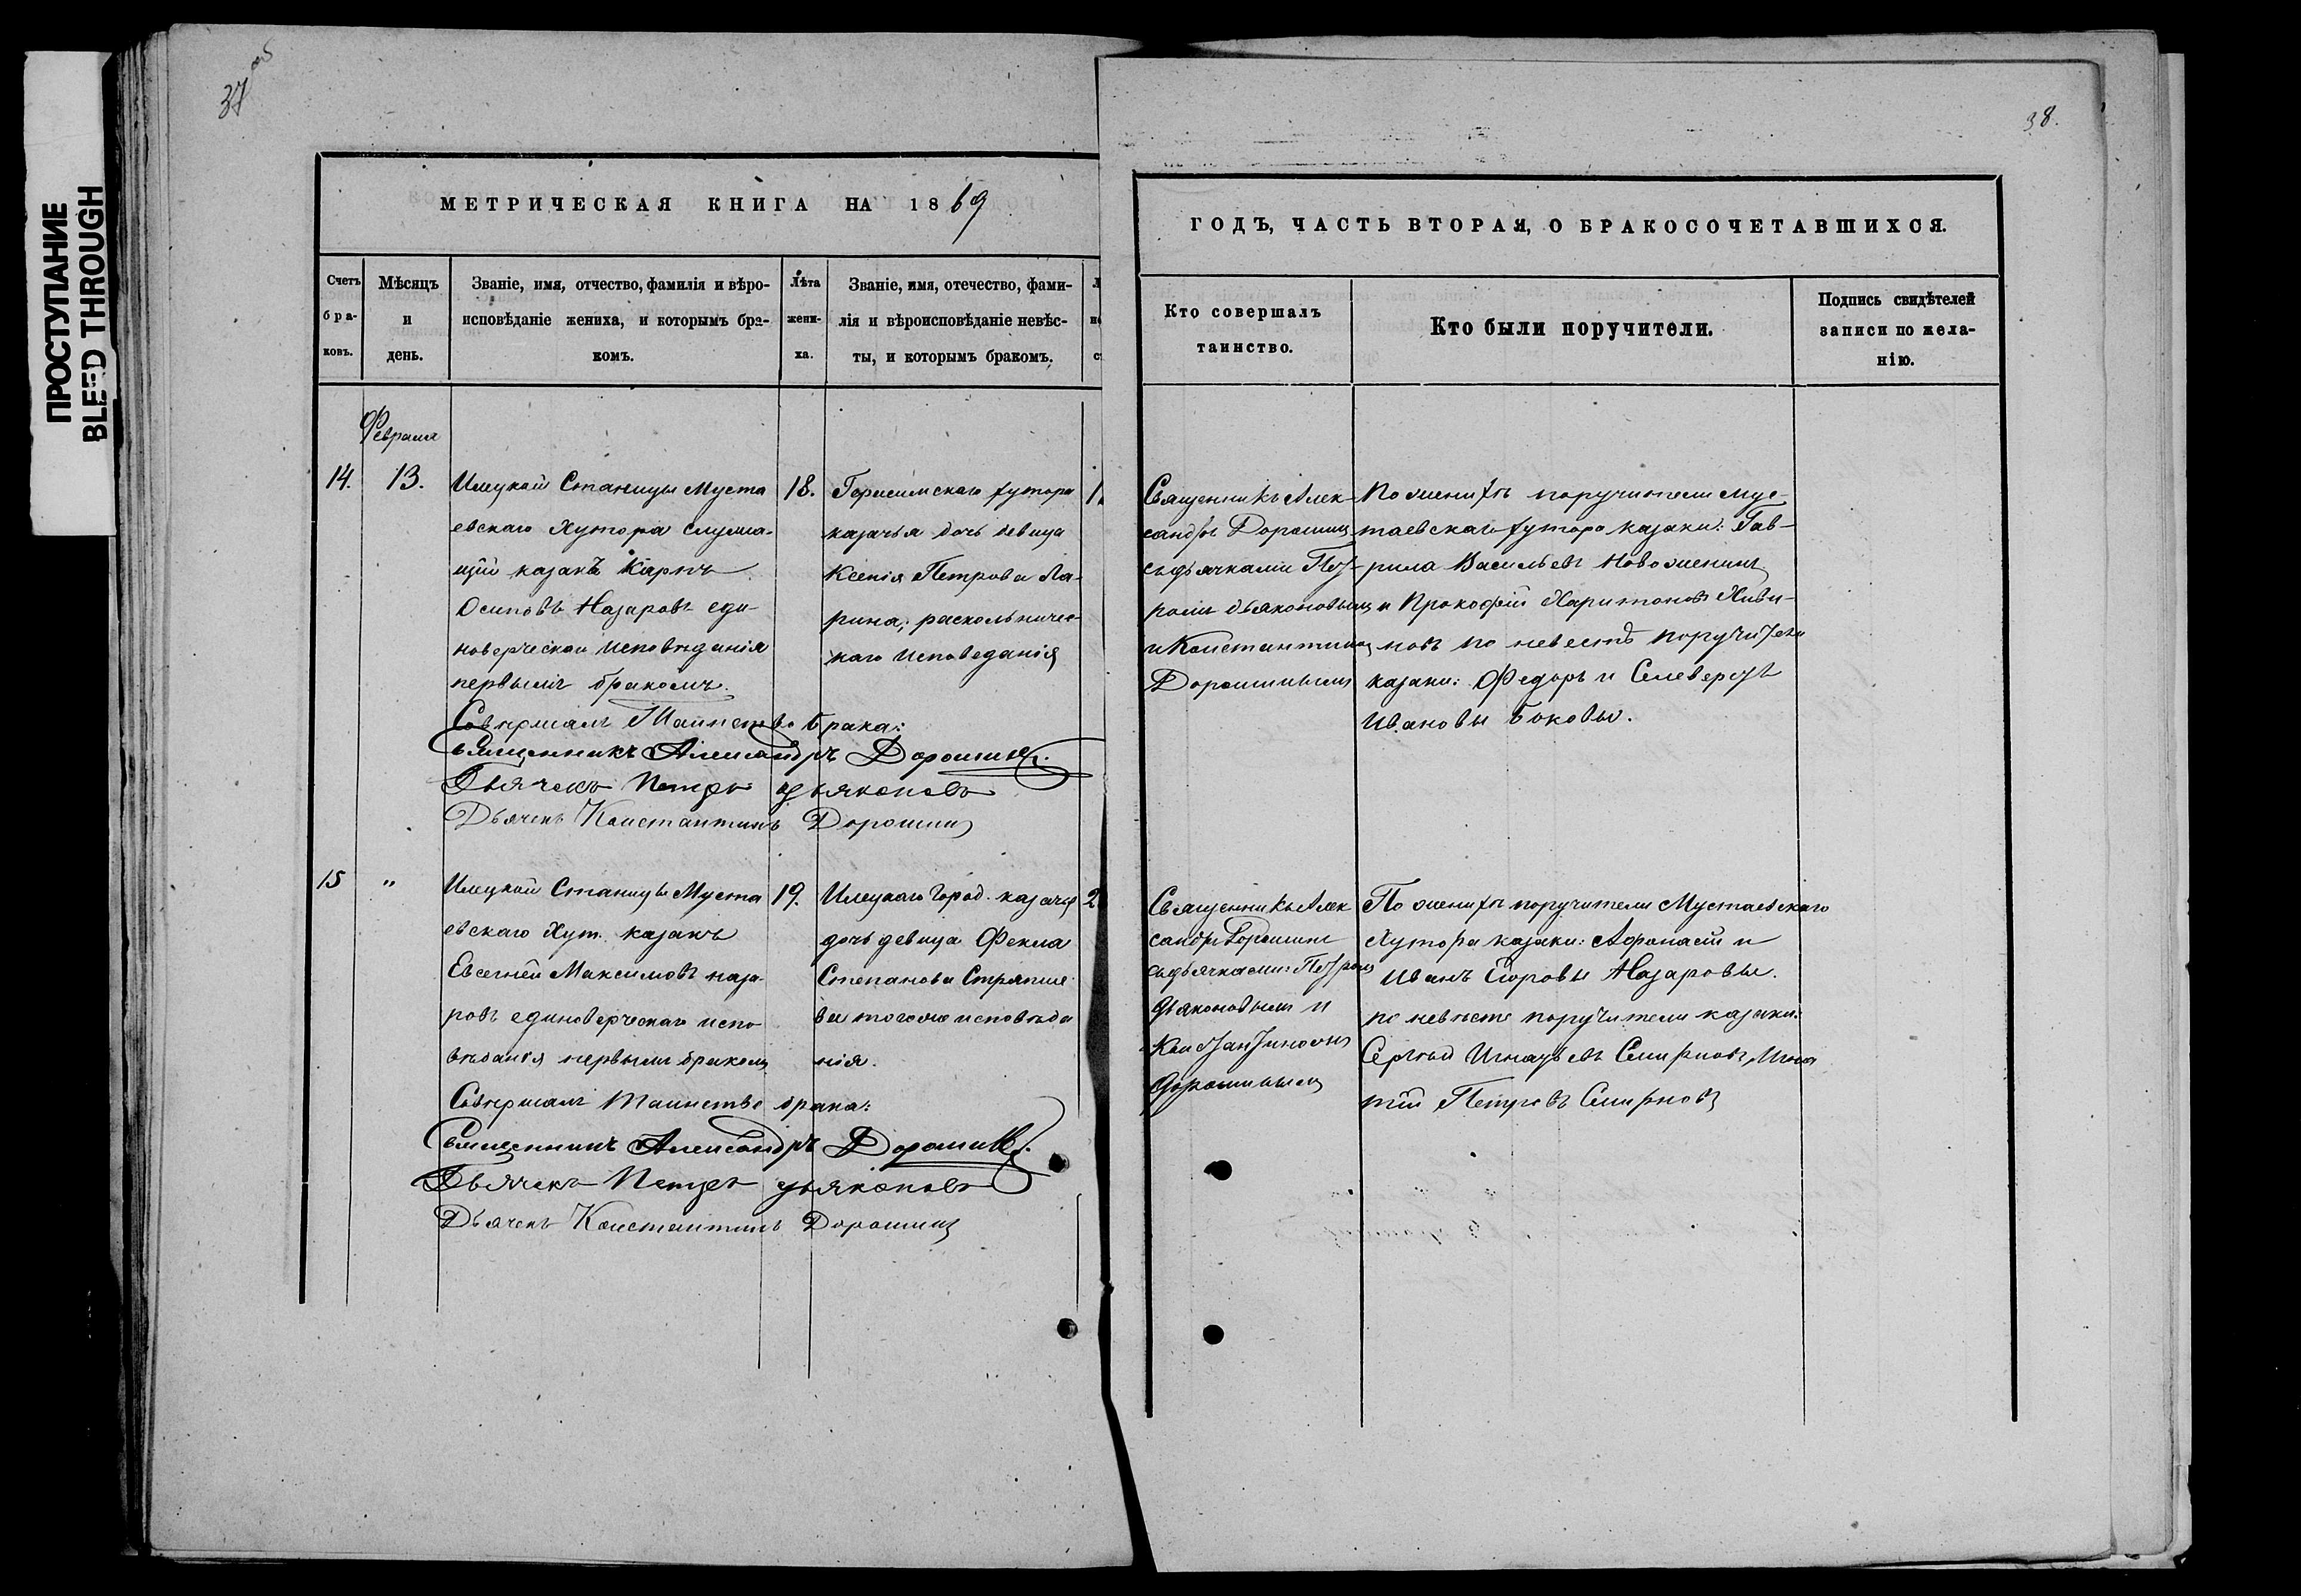 37 об
38.
ПРОСТУПАНИЕ
BLEED THROUGH
МЕТРИЧЕСКАЯ КНИГА НА 1869
Счетъ бра-ковъ.
Мѣсяцъ и день.
Званіе, имя, отчество, фамилія и вѣро-
исповѣданіе жениха, и которымъ бра-
комъ.
Лѣта жени-ха.
Званіе, имя, отечество, фами-
лія и вѣроисповѣданіе невѣс-
ты, и которымъ бракомъ.
Февраля
14.
13.
Илецкой Станицы Муста
евскаго Хутора служа-
щій казакъ Карпъ
Осиповъ Назаровъ еди-
новерческаго исповѣданія
первымъ бракомъ.
18.
казачья дочь девица
Ксенія Петрова Ла-
рина; раскольничес-
каго исповеданія
Совершалъ Таинство брака:
Священникъ Александръ Дорошинъ.
Дьячекъ Петръ Дьяконовъ
Дьячекъ Константинъ Дорошинъ
15
"
Илецкой Станицы Муста
евскаго Хут. казакъ
Евсегней Максимовъ наза-
ровъ единоверческаго испо
вѣданія первымъ бракомъ
19.
Илецкаго Город. казачья
дочь девица Фекла
Степанова Стряпше
ва тогоже исповѣда
нія.
Совершалъ таинство брака:
Священникъ Александръ Дорошинъ.
Дьячекъ Петръ Дьяконовъ
Дьячекъ Константинъ Дорошинъ
ГОДЪ, ЧАСТЬ ВТОРАЯ, О БРАКОСОЧЕТАВШИХСЯ.
Кто совершалъ
таинство.
Кто были поручители.
Подпись свидѣтелей
записи по жела-
нію.
Священникъ Алек-
сандръ Дорошинъ
съ дьячками Пет-
ромъ дьяконовымъ
и Константиномъ
Дорошинымъ
По женихѣ поручители Мус-
таевскаго хутора казаки: Гав-
рила Васильевъ Новоженинъ
и Прокофій Харитоновъ Живи-
новъ по невестѣ поручители
казаки: Федоръ и Селеверстъ
Ивановы Боковы.
Священникъ Алек
сандръ Дорошинъ
съ дьячками: Петромъ
Дьяконовымъ и
Константиномъ
Дорошинымъ
По женихѣ поручители Мустаевскаго
Хутора казаки: Афонасій и
Иванъ Егоровы Назаровы.
по невѣсте поручители казаки:
Сергѣй Игнатьевъ Смирновъ, Игна
тій Петровъ Смирновъ